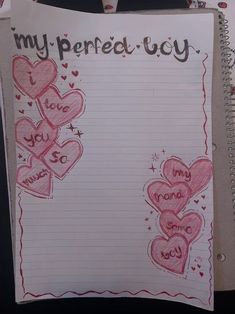 my perfect boy
i
love
you
so
much
my
nana
boy